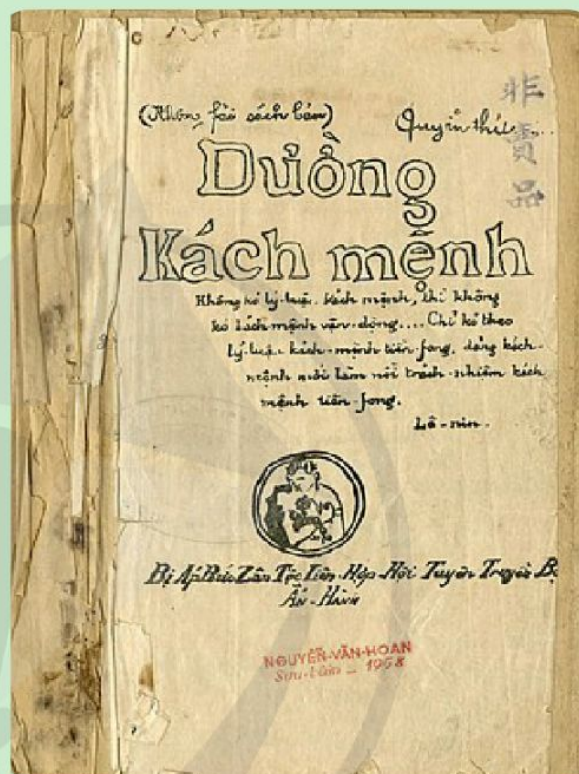 (Không fải sách bán)
Quyển thứ...
非賣品
Đường
Kách mệnh
Không kó lý-luận kách mệnh, thì không
kó kách mệnh vận-động.... Chỉ kó theo
lý-luận kách-mệnh tiền-fong, đảng kách-
mệnh mới làm nổi trách-nhiệm kách
mệnh tiền-fong.
Lê-nin.
Bị Áp Bức Zân Tộc Liên-Hợp-Hội Tuyên Truyền Bộ
Ấn-Hành
NGUYỄN-VĂN-HOAN
Sưu-tầm _ 1958